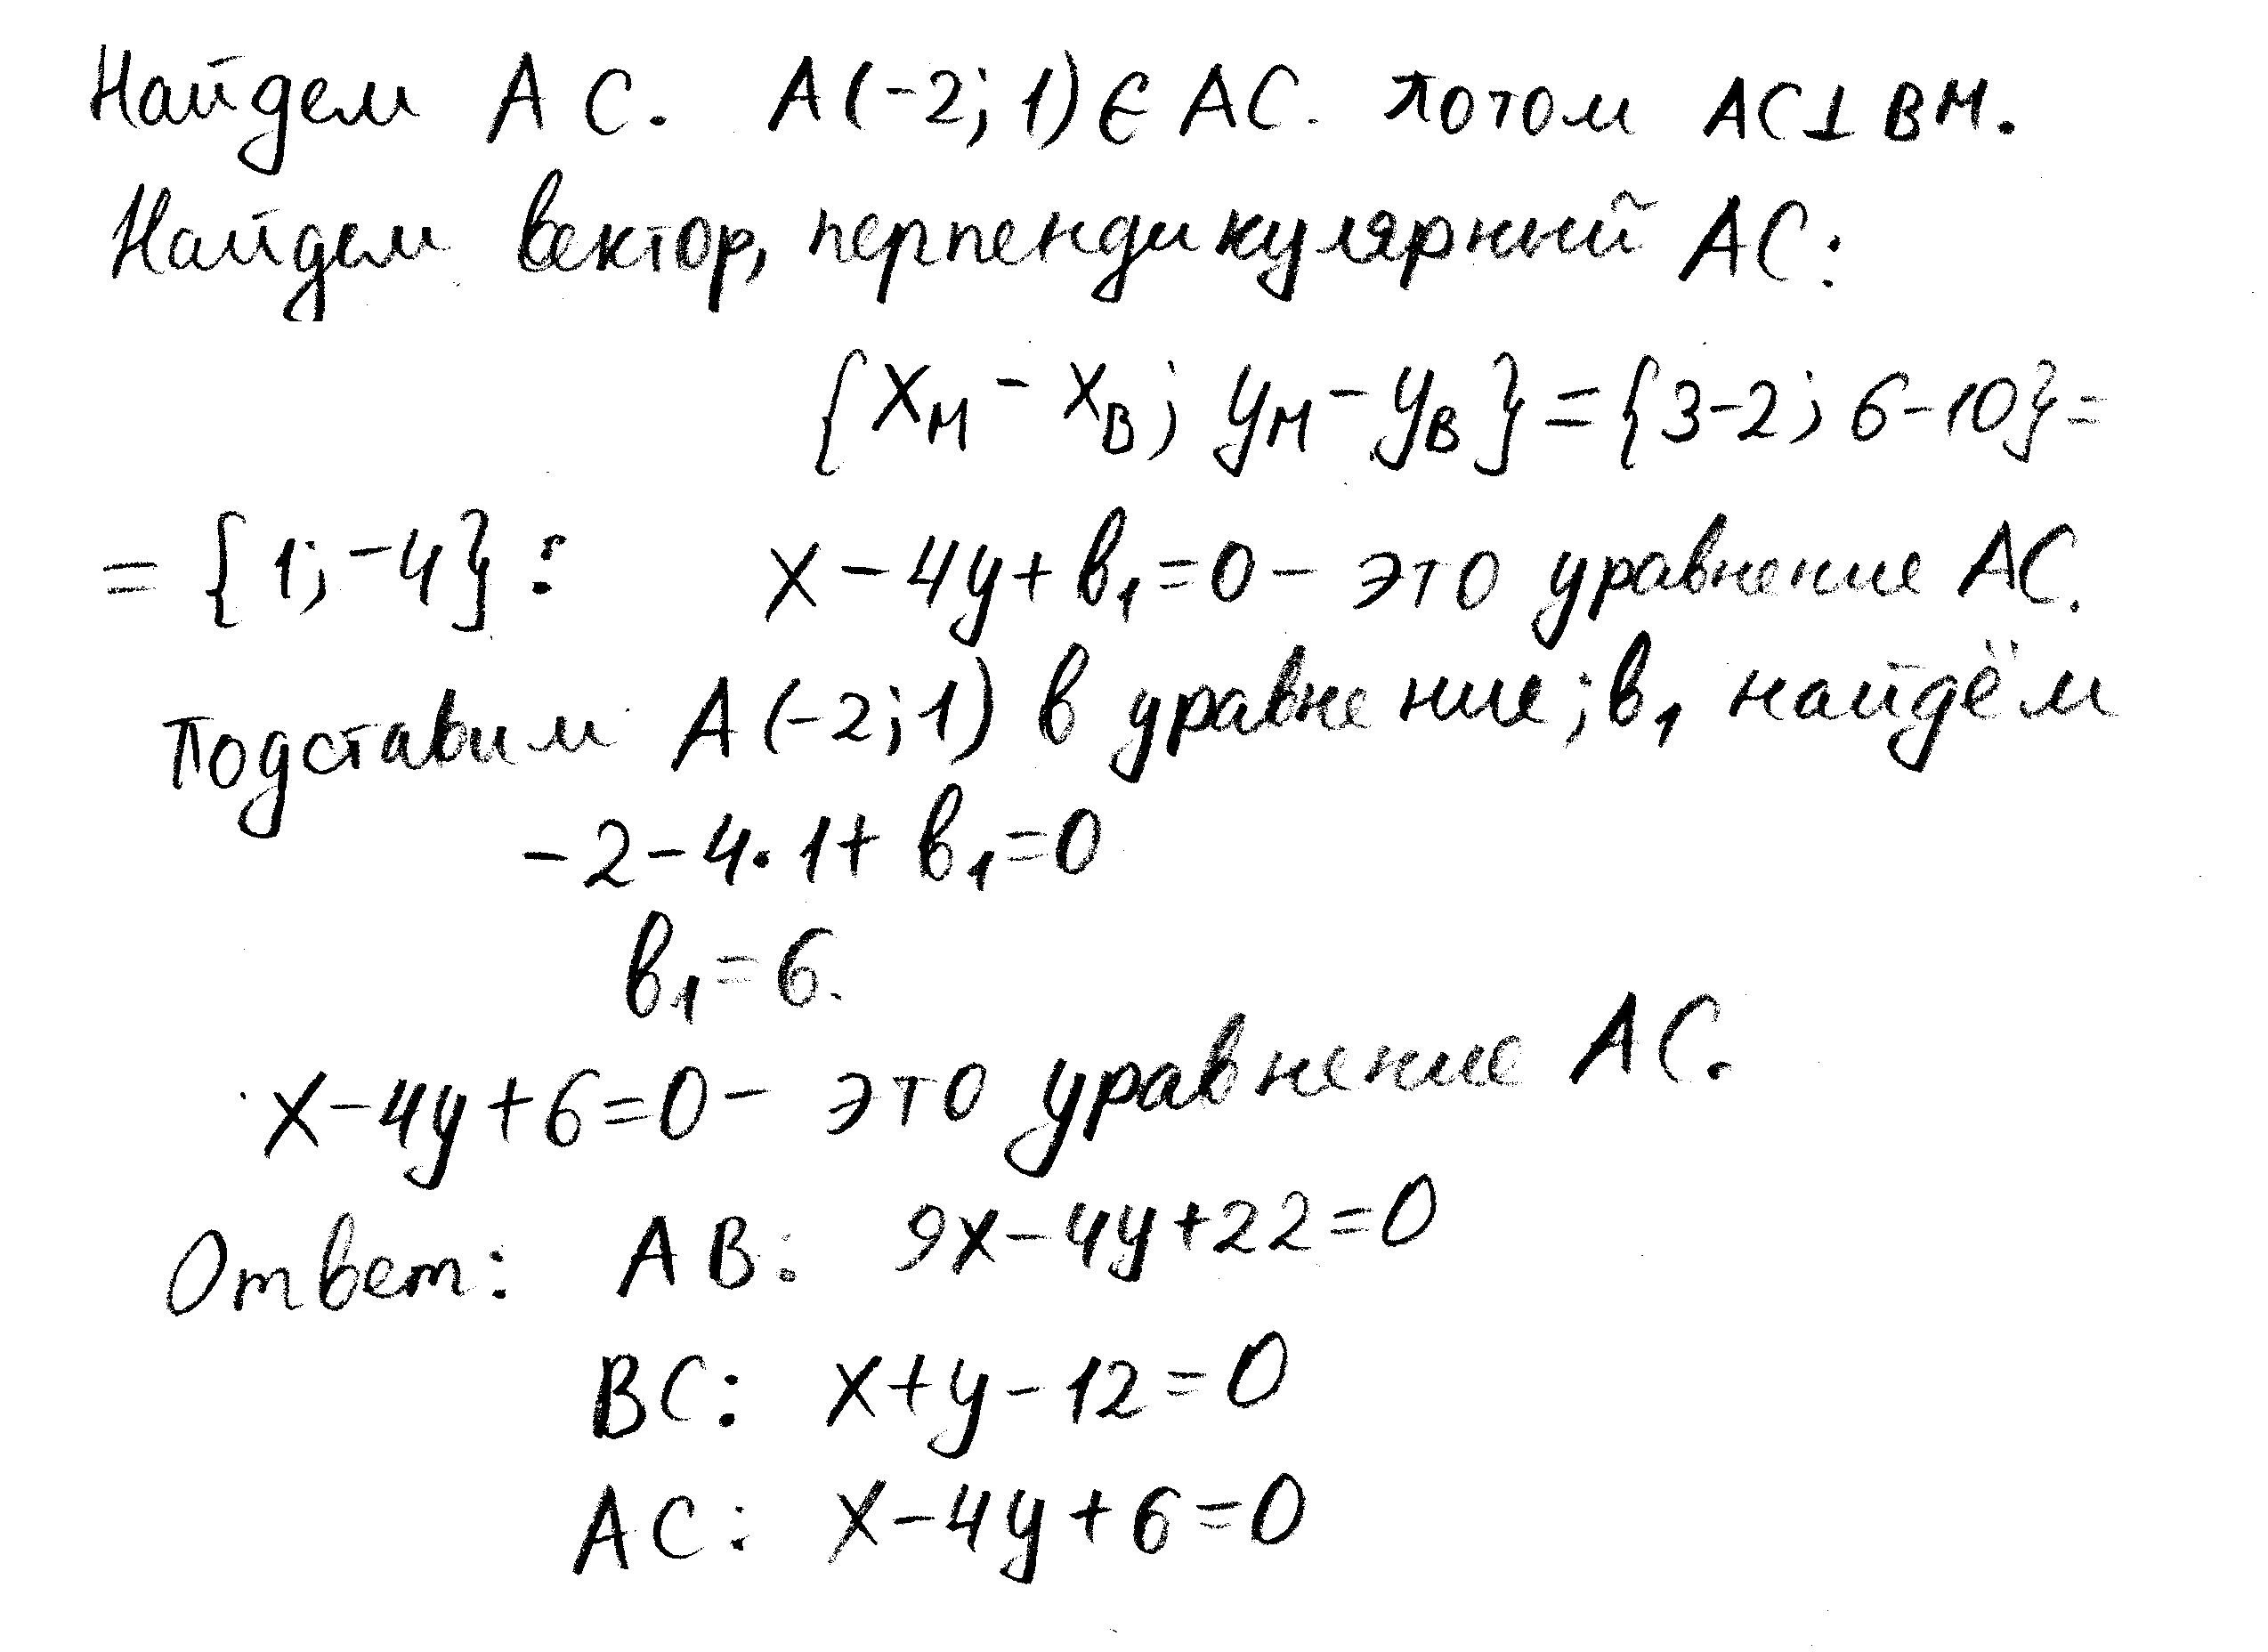 Найдем АС. А(-2;1)∈АС. потом АС⊥ВМ.
Найдем вектор, перпендикулярный АС:
{x_M - x_B; y_M - y_B} = {3-2; 6-10} =
= {1; -4}: x - 4y + в₁ = 0 - это уравнение АС.
Подставим А(-2;1) в уравнение; в₁ найдём
-2-4·1+в₁=0
в₁=6.
x-4y+6=0 - это уравнение АС.
Ответ: АВ: 9x-4y+22=0
ВС: x+y-12=0
АС: x-4y+6=0